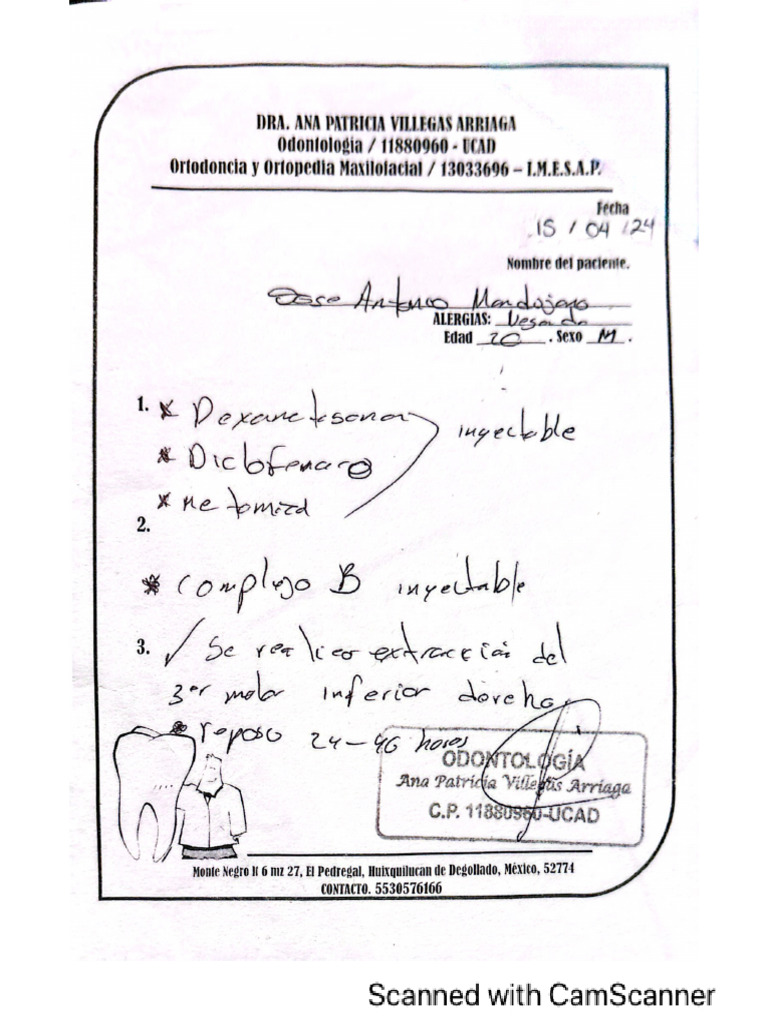 DRA. ANA PATRICIA VILLEGAS ARRIAGA
Odontología / 11880960 - UCAD
Ortodoncia y Ortopedia Maxilofacial / 13033696 – I.M.E.S.A.P.
Fecha
15 / 04 / 24
Nombre del paciente.
Jose Antonio Mondujano
ALERGIAS: Negando
Edad 20 . Sexo M .
1. * Dexametasona
inyectable
* Diclofenaco
*
2.
* Complejo B inyectable
3. ✓ Se realizo extracción del
3er molar inferior derecho
* reposo 24-46 horas
ODONTOLOGÍA
Ana Patricia Villegas Arriaga
C.P. 11880960-UCAD
Monte Negro lt 6 mz 27, El Pedregal, Huixquilucan de Degollado, México, 52774
CONTACTO. 5530576166
Scanned with CamScanner